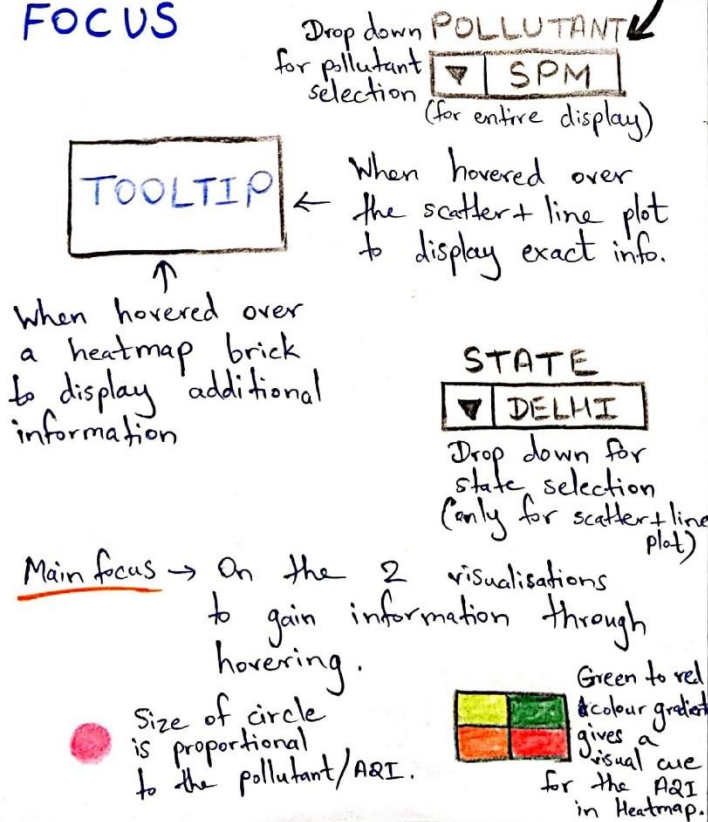 FOCUS
Drop down POLLUTANT
for pollutant
selection
▼ SPM
(for entire display)
TOOLTIP
When hovered over
the scatter+ line plot
to display exact info.
When hovered over
a heatmap brick
to display additional
information
STATE
▼ DELHI
Drop down for
state selection
(only for scatter+line
plot)
Main focus → On the 2 visualisations
to gain information through
hovering.
Size of circle
is proportional
to the pollutant/AQI.
Green to red
colour gradient
gives a
visual cue
for the AQI
in Heatmap.